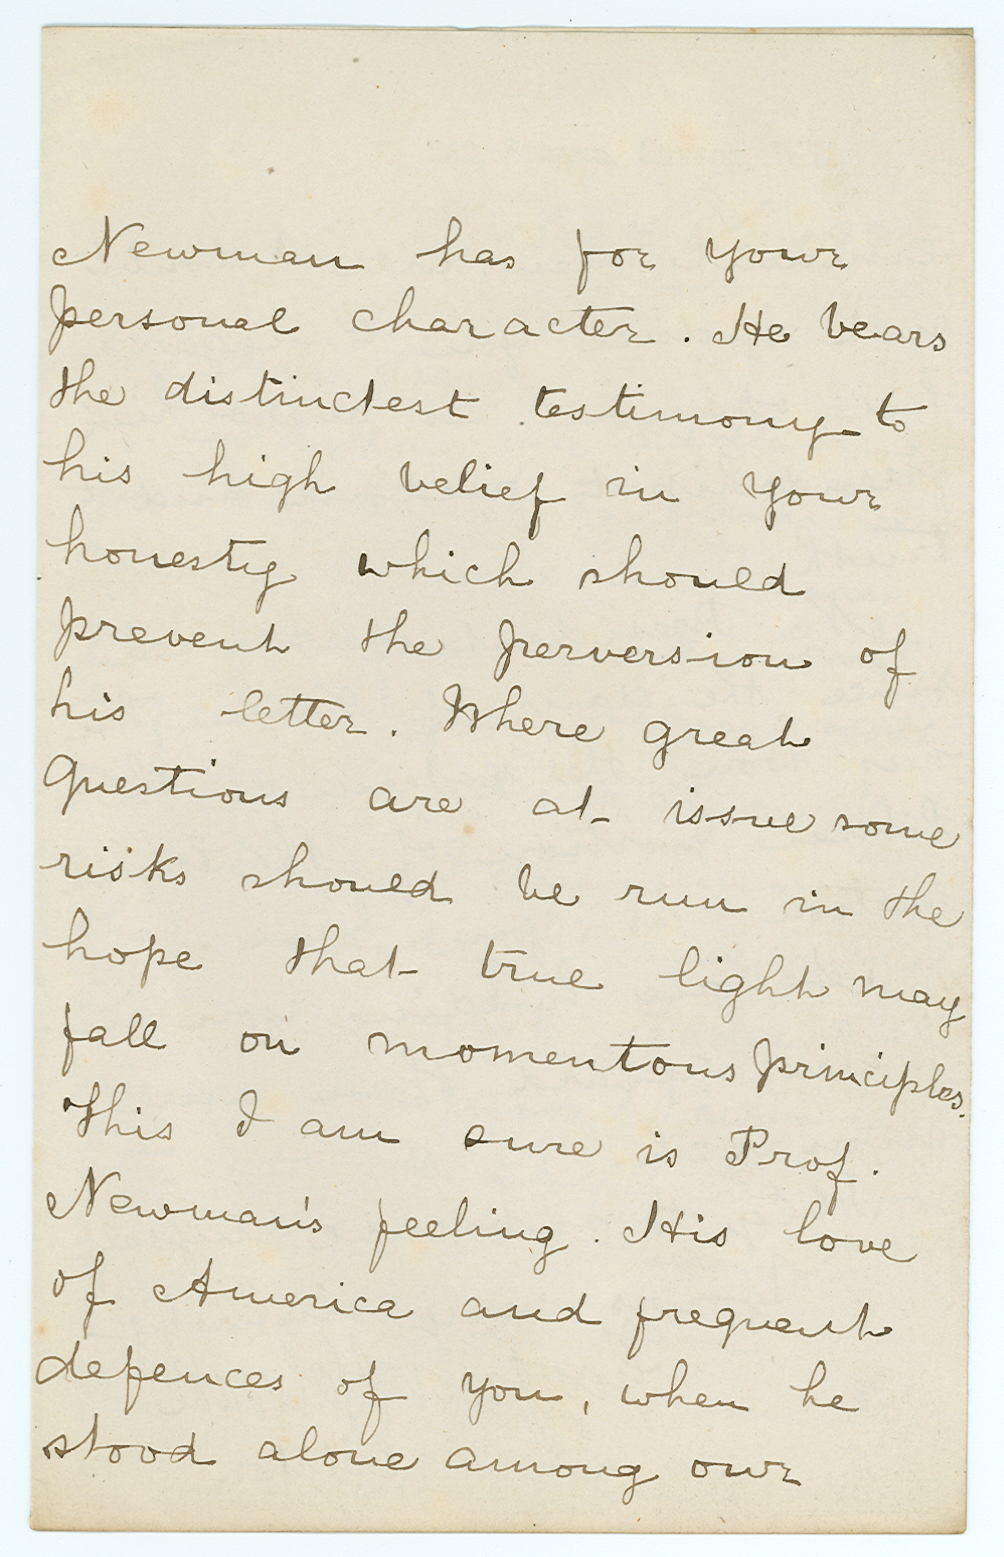 Newman has for your
personal character. He bears
the distinctest testimony to
his high belief in your
honesty which should
prevent the perversion of
his letter. Where great
questions are at issue some
risks should be run in the
hope that true light may
fall on momentous principles.
This I am sure is Prof.
Newman's feeling. His love
of America and frequent
defences of you, when he
stood alone among our